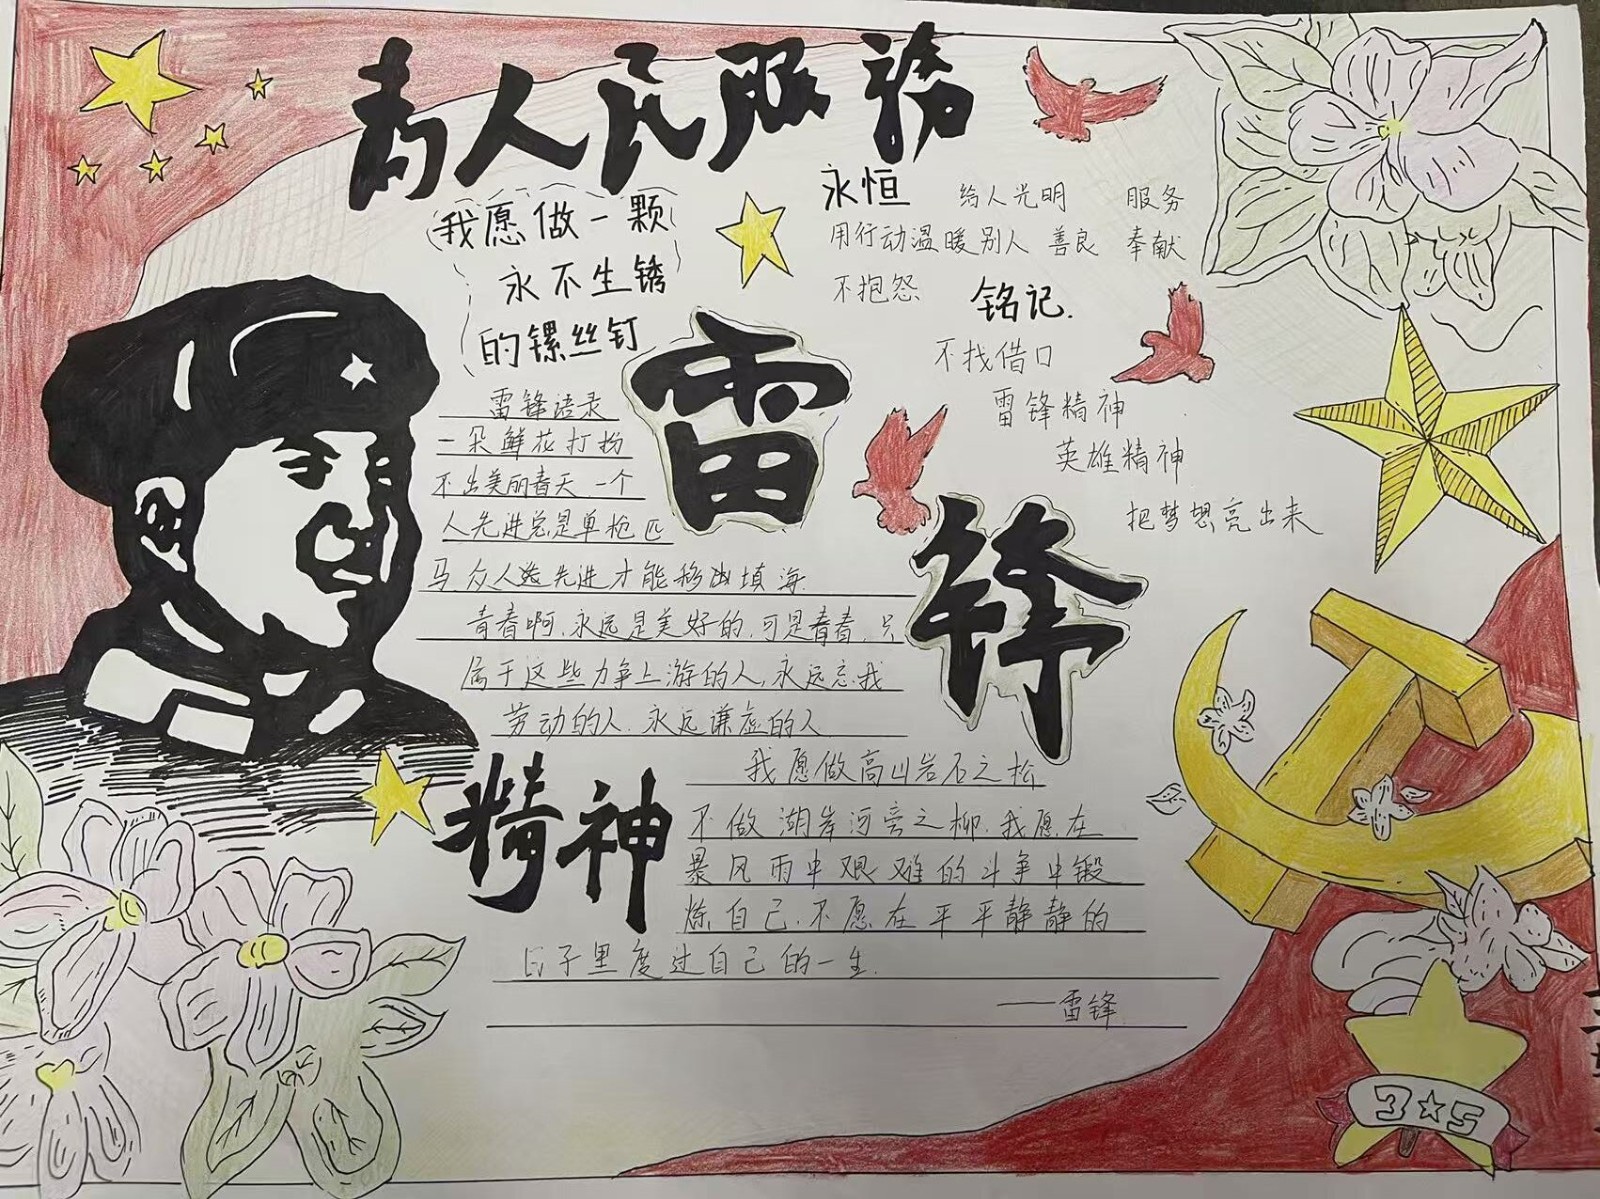 为人民服務
我愿做一颗
永不生锈
的镙丝钉
永恒 给人光明 服务
用行动温暖别人 善良 奉献
不抱怨 铭记.
不找借口
雷锋精神
英雄精神
把梦想亮出来
雷锋
精神
雷锋语录
一朵鲜花打扮
不出美丽春天.一个
人先进总是单枪匹
马.众人先进才能移山填海.
青春啊,永远是美好的.可是青春.只
属于这些力争上游的人,永远忘我
劳动的人.永远谦虚的人
我愿做高山岩石之松
不做湖岸河旁之柳.我愿在
暴风雨中艰难的斗争中锻
炼自己.不愿在平平静静的
日子里度过自己的一生.
——雷锋
3★5